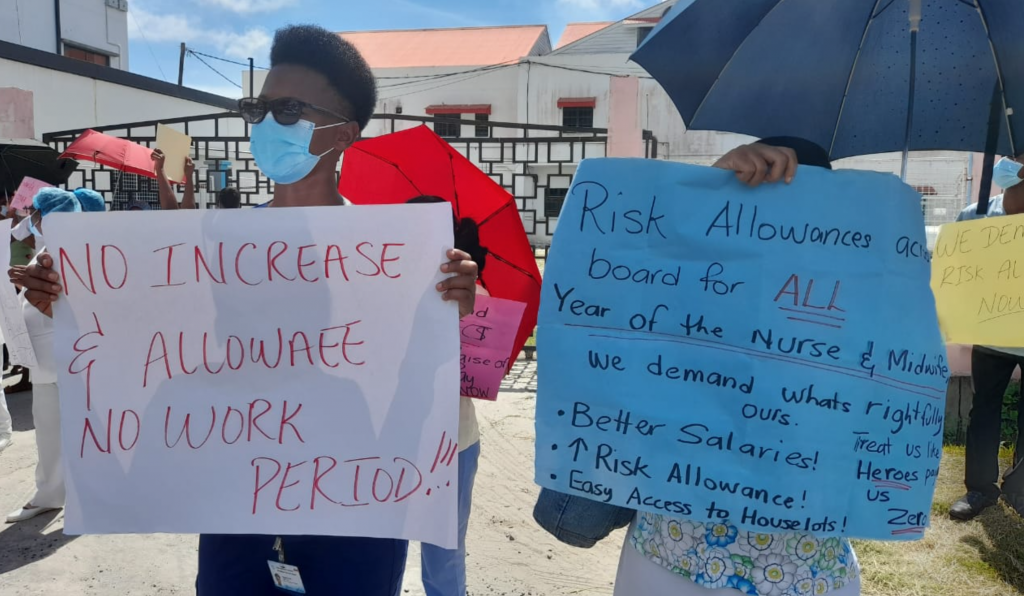 NO INCREASE
& ALLOWAEE
NO WORK
PERIOD.!!!
Risk Allowances
board for ALL
Year of the Nurse & Midwife
we demand whats rightfully
ours.
• Better Salaries!
• ↑ Risk Allowance!
• Easy Access to Houselots!
Treat us like
Heroes
us
Zero
WE
RISK
NOW
NOW